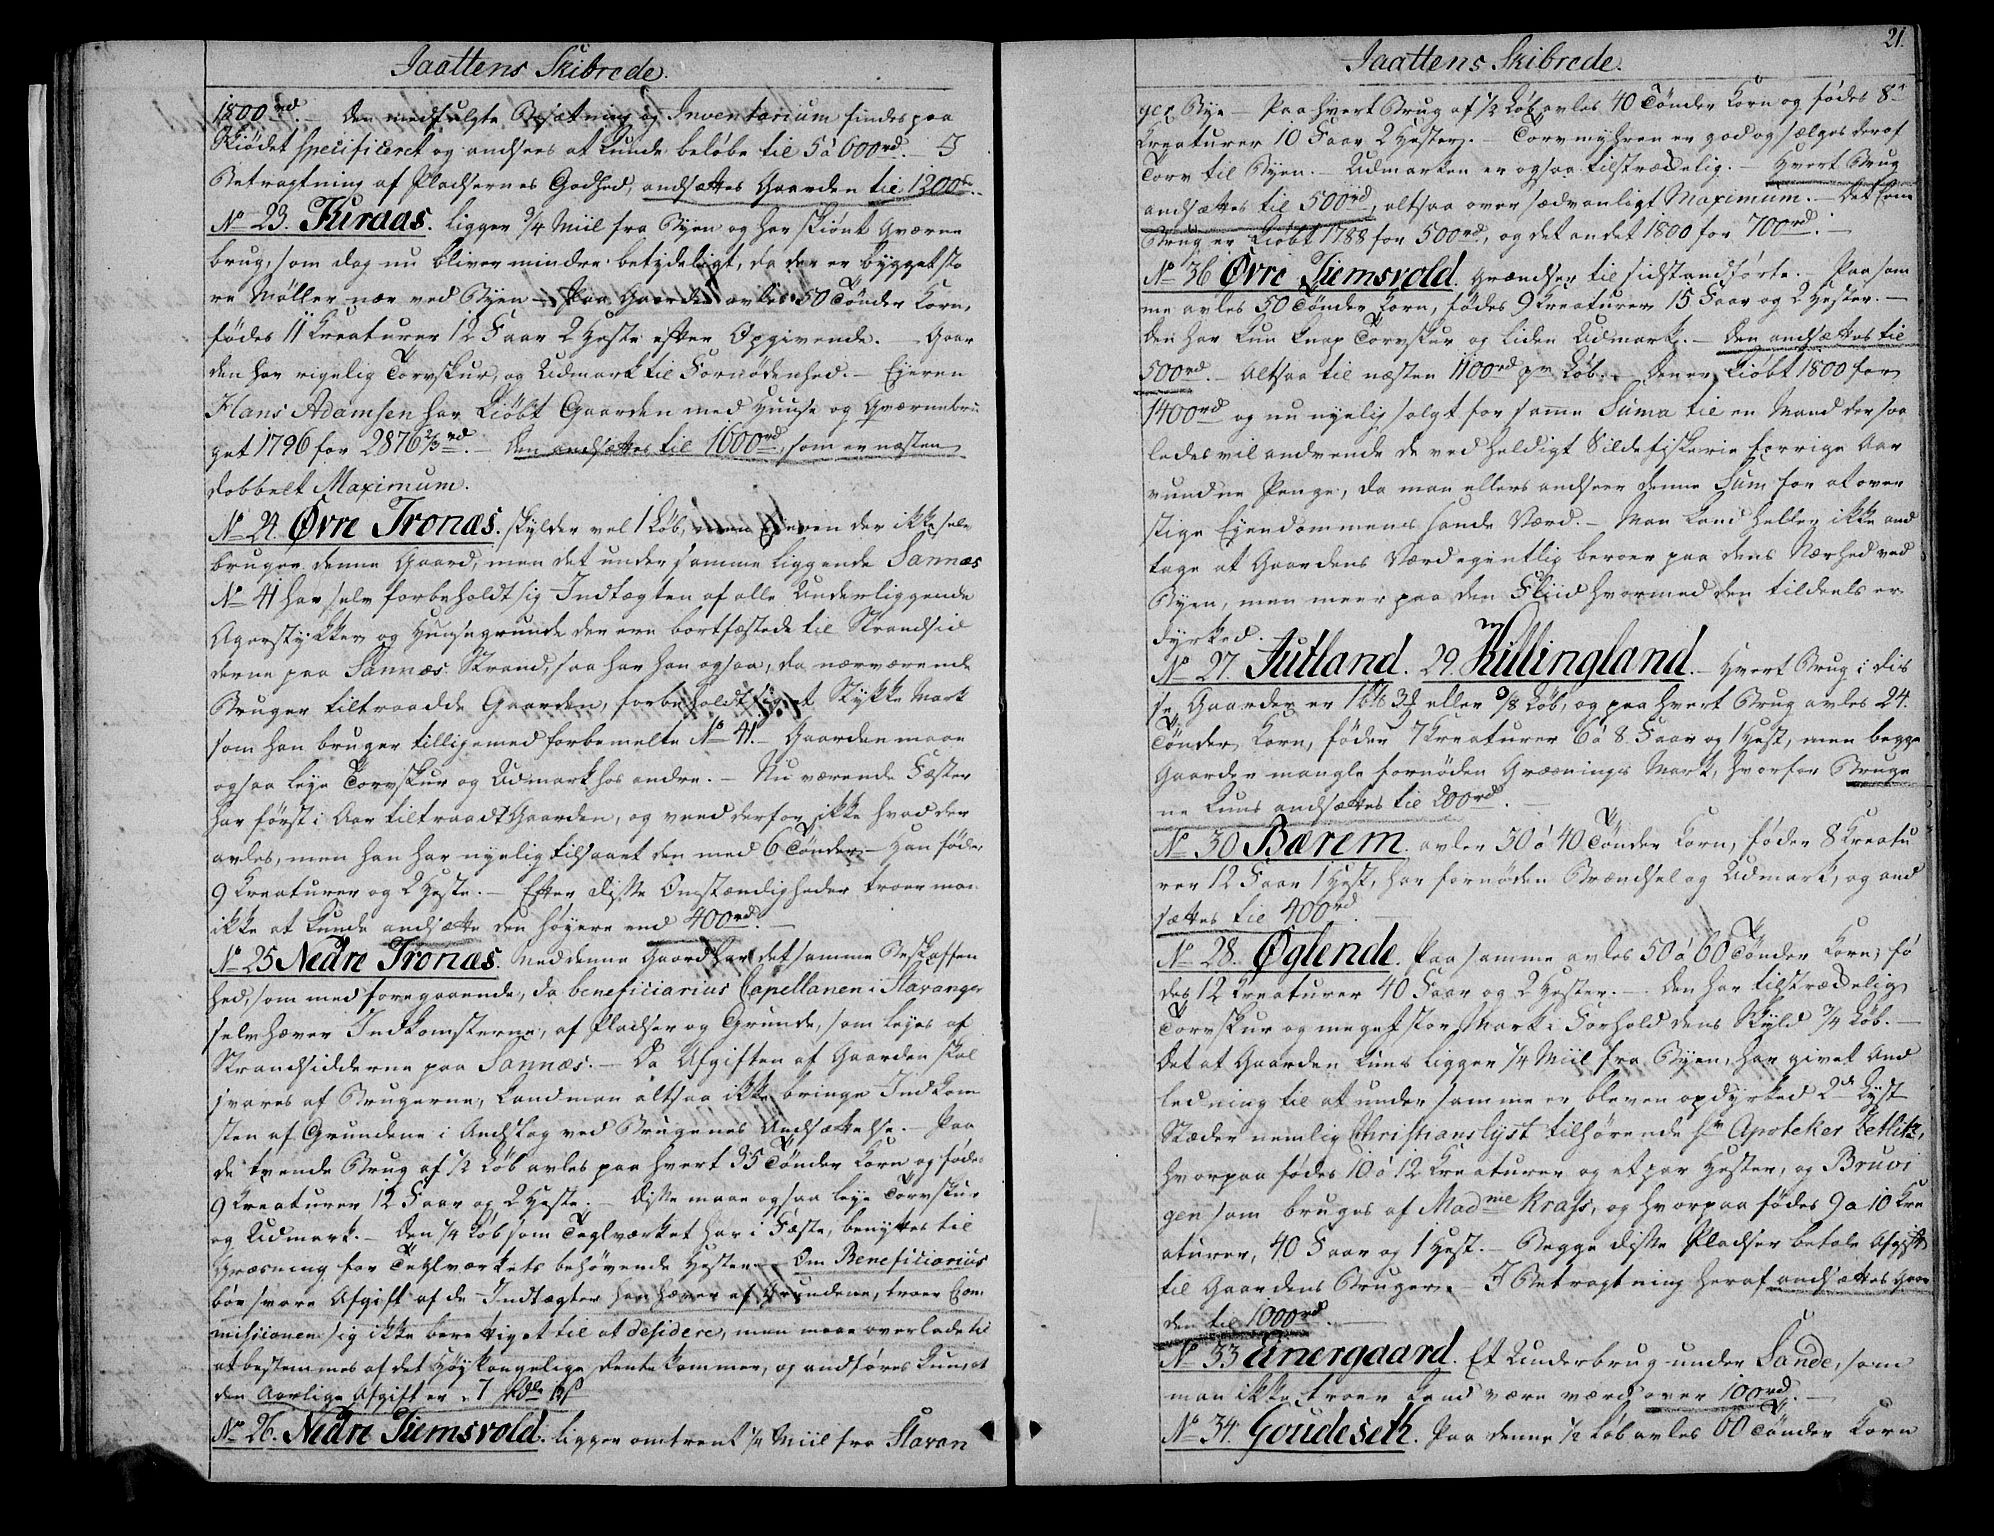 Jaattens Skibrede.
1800rd. – Den medfulgte Besætning og Inventarium findes paa
Skiødet specificeret og andsees at kunde beløbe til 5 á 600rd. – I
Betragtning af Pladsernes Godhed, andsættes Gaarden til 1200rd. –
No 23. Furaas. ligger 3/4 Miil fra Byen og har skiønt Qværne
brug, som dog nu bliver mindre betydeligt, da der er bygget stø
re Møller nær ved Byen – Paa Gaarden avles 50 Tønder Korn,
fødes 11 Kreaturer 12 Faar 2 Heste efter Opgivende. – Gaar
den har rigelig Torvskur, og Udmark til Fornødenhed. – Ejeren
Hans Adamsen har kiøbt Gaarden med Huuse og Qværnebru
get 1796 for 2876 2/3 rd. – Den andsættes til 1600rd, som er næsten
dobbelt Maximum.
No 24. Øvre Tronæs. skylder vel 1 Løb, men Ejeren der ikke selv
bruger denne Gaard, men det under samme liggende Sannæs
No 41 har selv forbeholdt sig Indtægten af alle Underliggende
Agerstykker og Huusegrunde der ere bortfæstede til Strandsid
derne paa Sannæs Strand, saa har han ogsaa, da nærværende
Bruger tiltraadde Gaarden, forbeholdt sig et Stykke Mark
som han bruger tilligemed forbemelte No 41. – Gaarden maae
ogsaa leye Torvskur og Udmark hos andre. – Nu værende Fæster
har først i Aar tiltraadt Gaarden, og veed derfor ikke hvad der
avles, men han har nyelig tilsaaet den med 6 Tønder. – Han føder
9 Kreaturer og 2 Heste. – Efter disse Omstændigheder troer man
ikke at kunde andsætte den høyere end 400rd. –
No 25 Nedre Tronæs. Med denne Gaard har det samme Beskaffen
hed, som med foregaaende, da beneficiarius Capellanen i Stavanger
selv hæver Indkomsterne, af Pladser og Grunde, som leyes af
Strandsidderne paa Sannæs. – Da Afgiften af Gaarden skal
svares af Brugerne, kand man altsaa ikke bringe Indkom
sten af Grundene i Andslag ved Brugenes Andsættelse. – Paa
de tvende Brug af 1/2 Løb avles paa hvert 35 Tønder Korn og fødes
9 Kreaturer 12 Faar og 2 Heste. – Disse maae ogsaa leye Torvskur
og Udmark. – Den 1/4 Løb som Teglværket har i Fæste, benyttes til
Græsning for Teglværkets behøvende Heste. – Om Beneficiarius
bør svare Afgift af de Indtægter han hæver af Grundene, troer Com
missionen sig ikke berettiget til at desidere, men maae overlade til
at bestemmes af det Høykongelige Rentekammer, og andføres kun, at
den Aarlige Afgift er 7 Rdlr
No 26. Nedre Tiemsvold. ligger omtrent 1/4 Miil fra Stavan
21.
Jaattens Skibrede.
ger Bye – Paa hvert Brug af 1/2 Løb avles 40 Tønder Korn og fødes 8
Kreaturer 10 Faar 2 Hester. – Torvmyhren er god og sælges deraf
Torv til Byen. – Udmarken er ogsaa tilstrækkelig. – Hvert Brug
andsættes til 500rd, altsaa over sædvanligt Maximum. – Det Eene
Brug er kiøbt 1788 for 500rd, og det andet 1800 for 700rd. –
No 36 Øvre Tiemsvold. Grændser til sidstandførte. – Paa sam
me avles 50 Tønder Korn, fødes 9 Kreaturer 15 Faar og 2 Hester. –
Den har kun knap Torvskur og liden Udmark. – Den andsættes til
500rd. – Altsaa til næsten 1100rd pr Løb. – Den er kiøbt 1800 for
1400rd og nu nyelig solgt for samme Suma til en Mand der saa
ledes vil andvende de ved heldigt Sildefiskerie forrige Aar
vundne Penge, da man ellers andseer denne Sum for at over
stige Eyendommens sande Værd. – Man kand heller ikke and
tage at Gaardens Værd egentlig beroer paa dens Nærhed ved
Byen, men meer paa den Fliid hvormed den tildeels er
dyrked.
No 27. Jutland. 29. Killingland. – Hvert Brug i dis
se Gaarder er eller 3/8 Løb, og paa hvert Brug avles 24.
Tønder Korn, føder 7 Kreaturer 6 á 8 Faar og 1 Hest, men begge
Gaarder mangle fornøden Græsnings Mark, hvorfor Bruge
ne kuns andsættes til 200rd. –
No 30 Bærem. avler 30 á 40 Tønder Korn, føder 8 Kreatu
rer 12 Faar 1 Hest, har fornøden Brændsel og Udmark, og and
sættes til 400rd. –
No 28. Øglende. Paa samme avles 50 á 60 Tønder Korn, fø
des 12 Kreaturer 40 Faar og 2 Hester. – Den har tilstrækkelig
Torvskur og meget stor Mark i Forhold dens Skyld 3/4 Løb. –
Det at Gaarden kuns ligger 1/4 Miil fra Byen, har givet And
ledning til at under samme er bleven opdyrked 2de Lyst
Stæder nemlig Christianslyst tilhørende Hr Apoteker Zetlitz,
hvorpaa fødes 10 á 12 Kreaturer og et par Hester, og Bruvi
gen som bruges af Madme Krafs, og hvorpaa fødes 9 á 10 Kre
aturer, 40 Faar og 1 Hest. – Begge disse Pladser betale Afgift
til Gaardens Bruger. – I Betragtning heraf andsættes Gaar
den til 1000rd. –
No 33 Einergaard. Et Underbrug under Sande, som
man ikke troer kand være værd over 100rd. –
No 34. Goudeseth. Paa denne 1/2 Løb avles 60 Tønder Korn